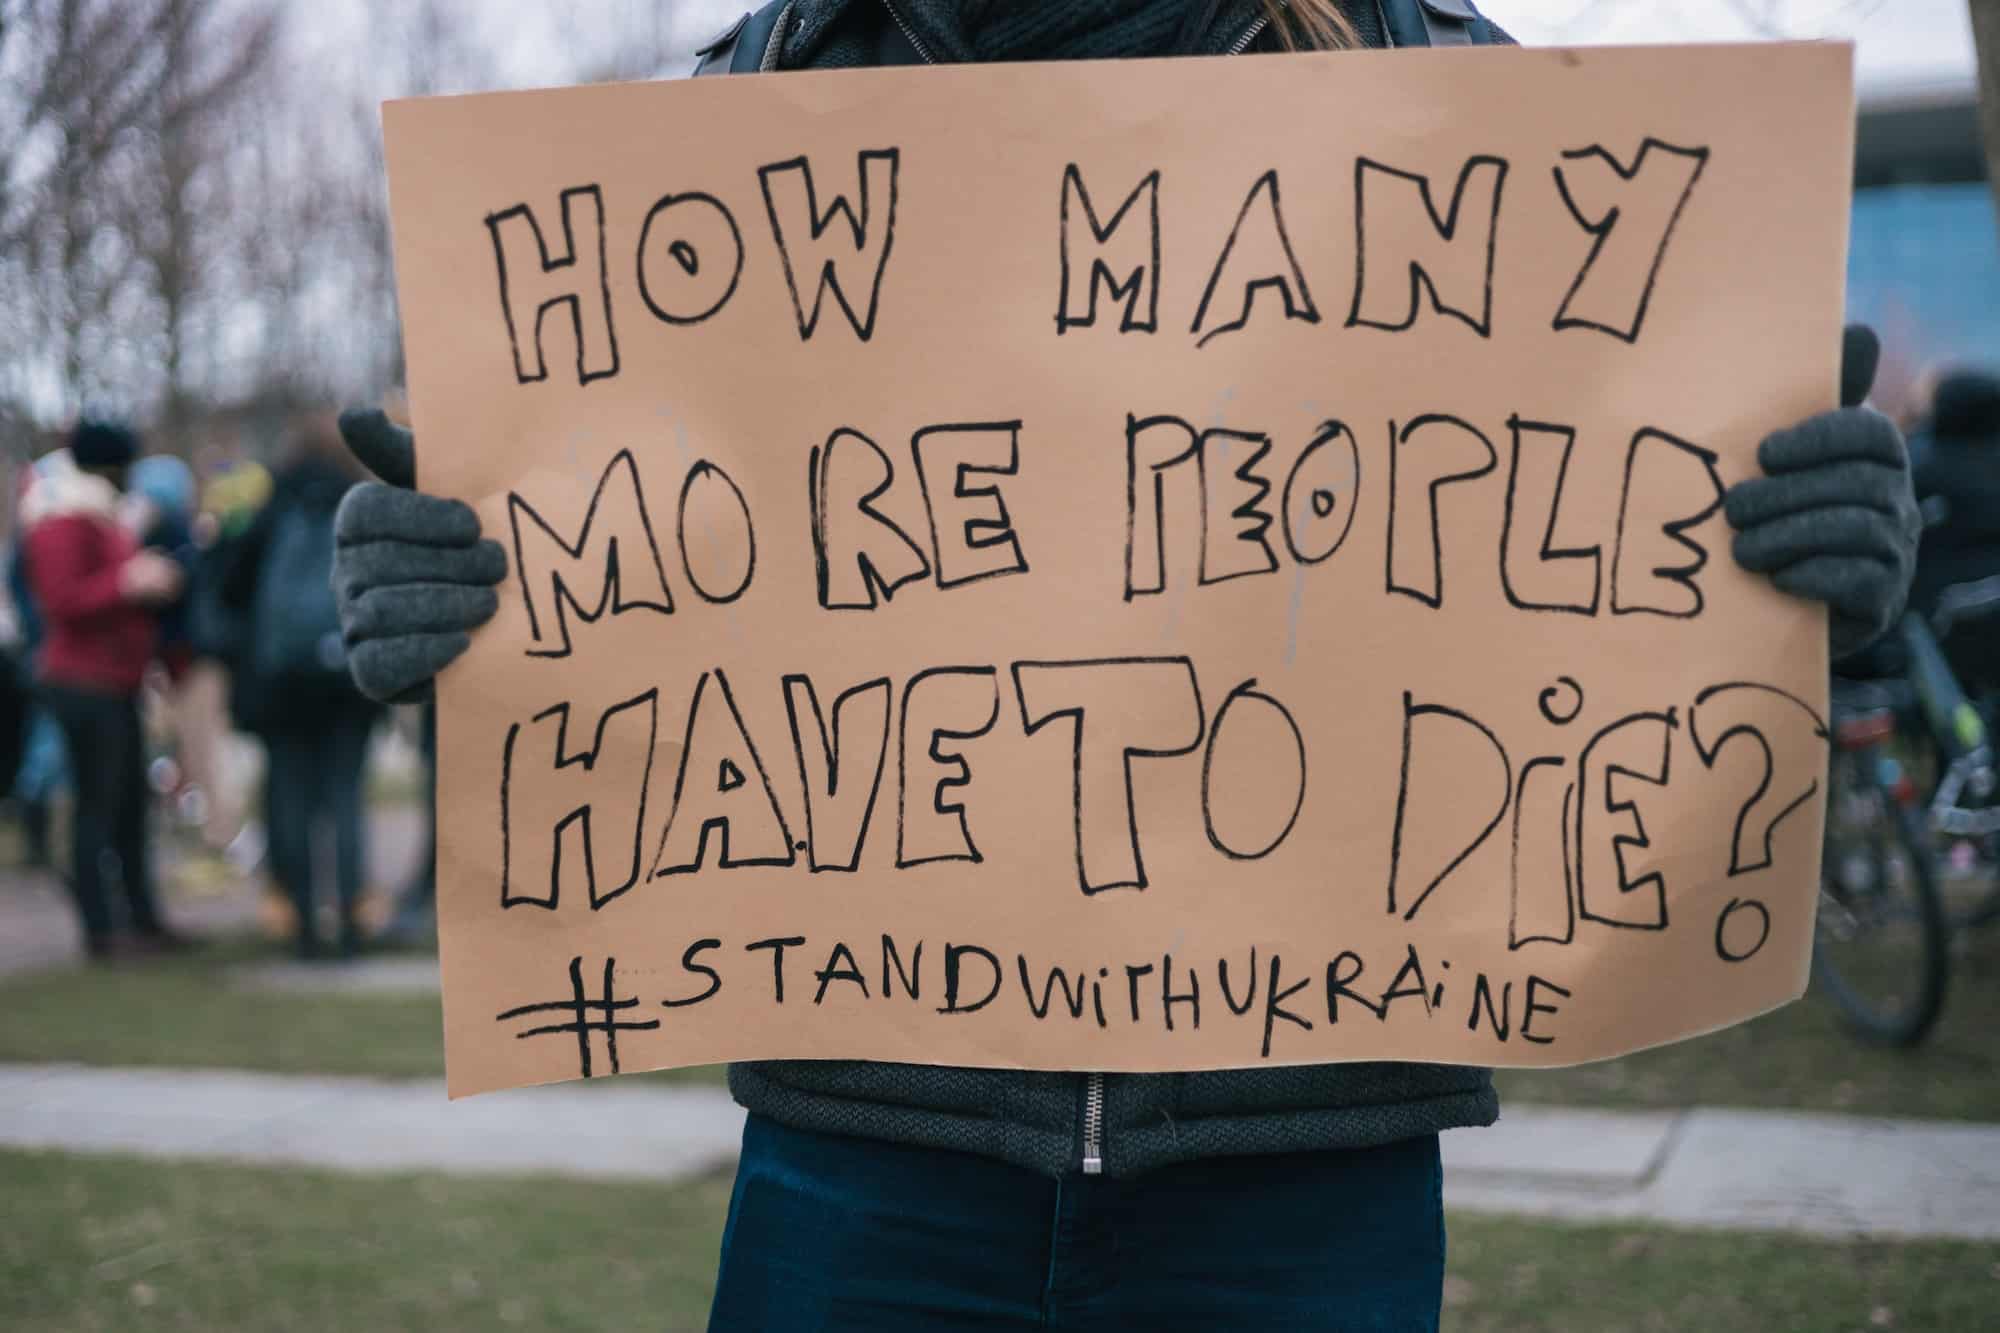 HOW MANY
MORE PEOPLE
HAVE TO DiE?
#STANDWiTHUKRAiNE